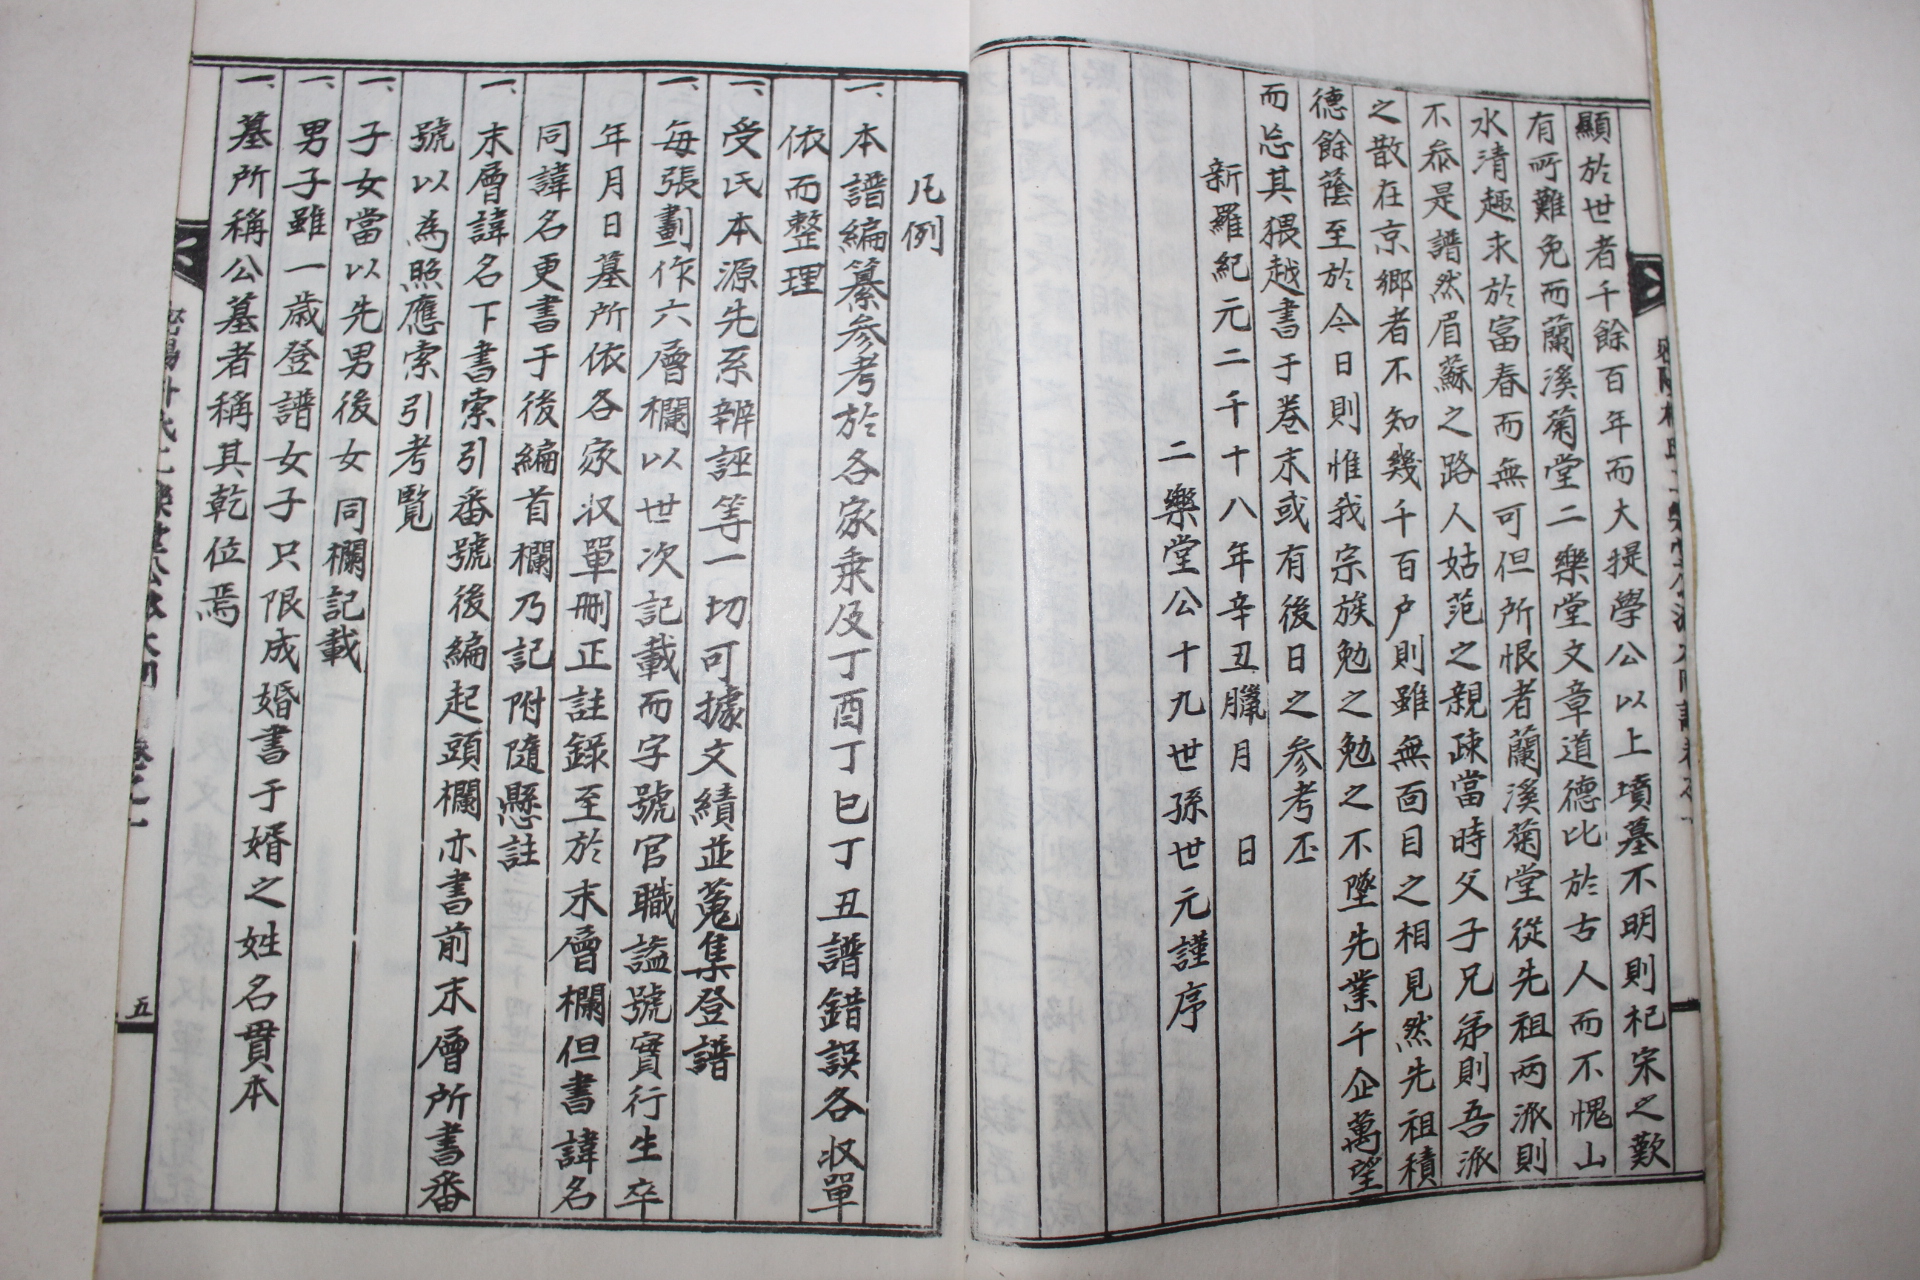 顯於世者千餘百年而大提學公以上墳墓不明則杞宋之歎
有所難免而蘭溪菊堂二樂堂文章道德比於古人而不愧山
水清趣求於富春而無可但所恨者蘭溪菊堂從先祖兩派則
不叅是譜然眉蘇之路人姑范之親疎當時父子兄弟則吾派
之散在京鄉者不知幾千百戶則雖無面目之相見然先祖積
德餘蔭至於今日則惟我宗族勉之勉之不墜先業千企萬望
而忘其猥越書于卷末或有後日之參考丕
新羅紀元二千十八年辛丑臘月 日
二樂堂公十九世孫世元謹序
凡例
一、本譜編纂參考於各家乘及丁酉丁巳丁丑譜錯誤各収單
依而整理
一、受氏本源先系辨誣等一切可據文績並蒐集登譜
一、每張劃作六層欄以世次記載而字號官職諡號實行生卒
年月日墓所依各家収單刪正註錄至於末層欄但書諱名
同諱名更書于後編首欄乃記附隨懸註
一、末層諱名下書索引番號後編起頭欄亦書前末層所書番
號以為照應索引考覽
一、子女當以先男後女 同欄記載
一、男子雖一歲登譜女子只限成婚書于婿之姓名貫本
一、墓所稱公墓者稱其乾位焉
五